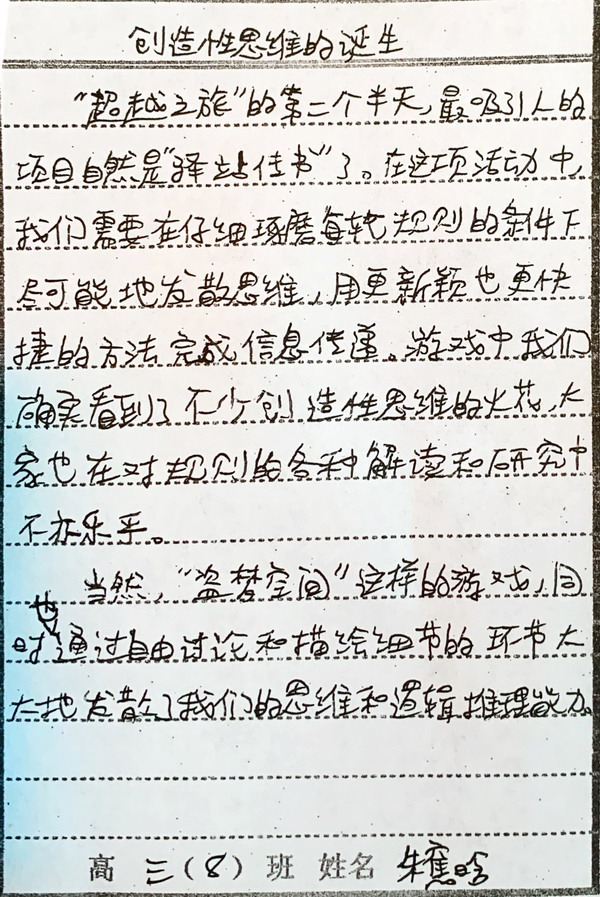 创造性思维的诞生
“超越之旅”的第二个半天，最吸引人的
项目自然是“驿站传书”了。在这项活动中，
我们需要在仔细琢磨每轮规则的条件下
尽可能地发散思维，用更新颖也更快
捷的方法完成信息传递。游戏中我们
确实看到了不少创造性思维的火花，大
家也在对规则的各种解读和研究中
不亦乐乎。
当然，“盗梦空间”这样的游戏，同
时也通过自由讨论和描绘细节的环节大
大地发散了我们的思维和逻辑推理能力。
高 三（8）班 姓名 朱